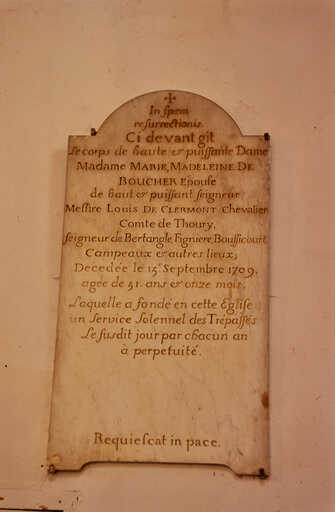 In spem
resurrectionis.
Ci devant git
Le corps de haute & puissante Dame
Madame MARIE, MADELEINE DE
BOUCHER Epouse
de haut & puissant seigneur
Messire LOUIS DE CLERMONT Chevalier
Comte de Thoury,
seigneur de Bertangle, Figniere, Boussicourt
Campeaux & autres lieux;
Decedée le 15e Septembre 1709,
agée de 51. ans & onze mois.
Laquelle a fondé en cette Église
un Service Solennel des Trépassés
Le susdit jour par chacun an
à perpetuité.
Requiescat in pace.